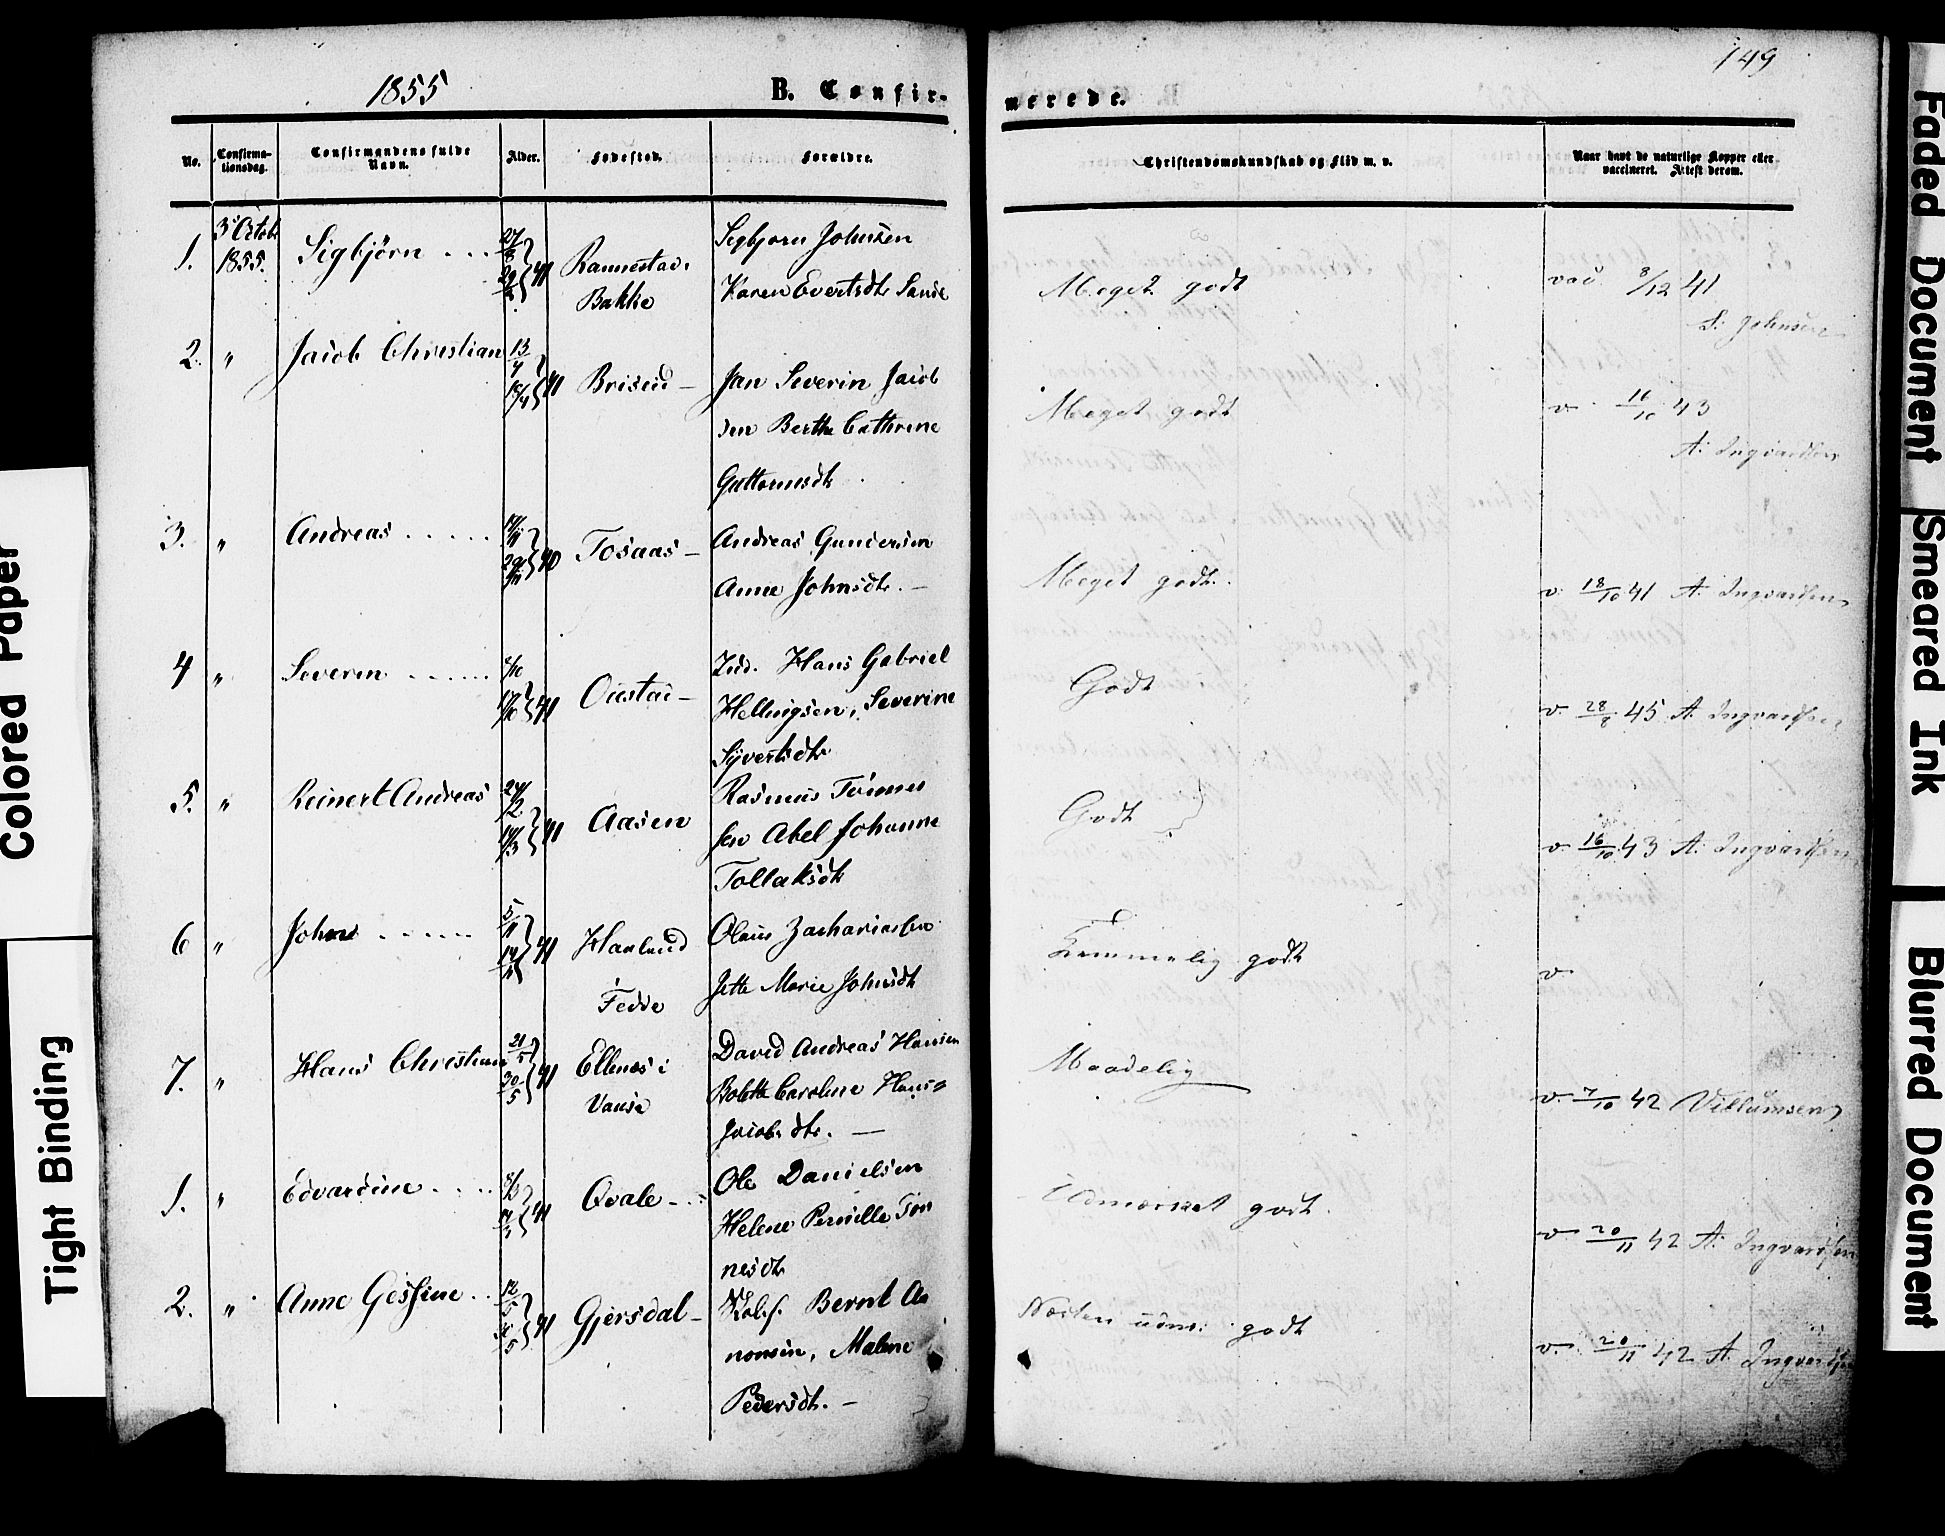 1855
B. Confir-
merede.
149
No.
Confirma-
tionsdag.
Confirmandens fulde
Navn.
Alder.
Fødested.
Forældre.
Christendomskundskab og Flid m. v.
Naar havt de naturlige Kopper eller
vaccineret. Attest derom.
1.
3. Octob
1855.
Sigbjörn
41
Rannestad
Bakke
Sigbjorn Johnsen
Karen Evertsdtr Sande
Meget godt
vac 8/12 41
S. Johnsen
2. "
Jacob Christian
13/4 18/4 41
Briseid
Jan Severin Jacob
sen Berthe Cathrine
Guttormsdtr
Meget godt
v. 16/10 43
A. Ingvardsen
3. "
Andreas
14/11 29/11 40
Tosaas
Andreas Gundersen
Anne Johnsdtr.
Meget godt.
v. 18/10 41 A. Ingvardsen
4 "
Severin
6/10 17/10 41
Oustad
Ind. Hans Gabriel
Hellugsen, Severine
Syvertsdtr
Godt
v. 28/8 45 A. Ingvardsen
5. "
Reinert Andreas
24/2 14/3 41
Aasen
Rasmus Tönnes
sen Abel Johanne
Tollaksdtr
Godt
v. 16/10 43 A. Ingvardsen
6 "
John
5/11 14/11 41
Haaland
Fedde
Olaus Zachariassen
Jette Marie Johnsdtr
Temmelig godt
v.
7. "
Hans Christian
21/5 30/5 41
Ellenæs i
Vanse
David Andreas Hansen
Bolette Caroline Hans
Jacobsdtr.
Maadelig
v. 7/10 42 Villumsen
1. "
Edvardine
41
Qvale
Ole Danielsen
Helene Pernille Tön
nesdtr
Udmærket godt.
v. 20/11 42 A. Ingvardsen
2. "
Anne Gessine
12/5 41
Gjersdal
Bernt Aa
nonsen, Malene
Pedersdtr.
Næsten udm: godt
v. 20/11 42 A. Ingvardsen
Colored Paper
Tight Binding
Faded Document
Smeared Ink
Blurred Document